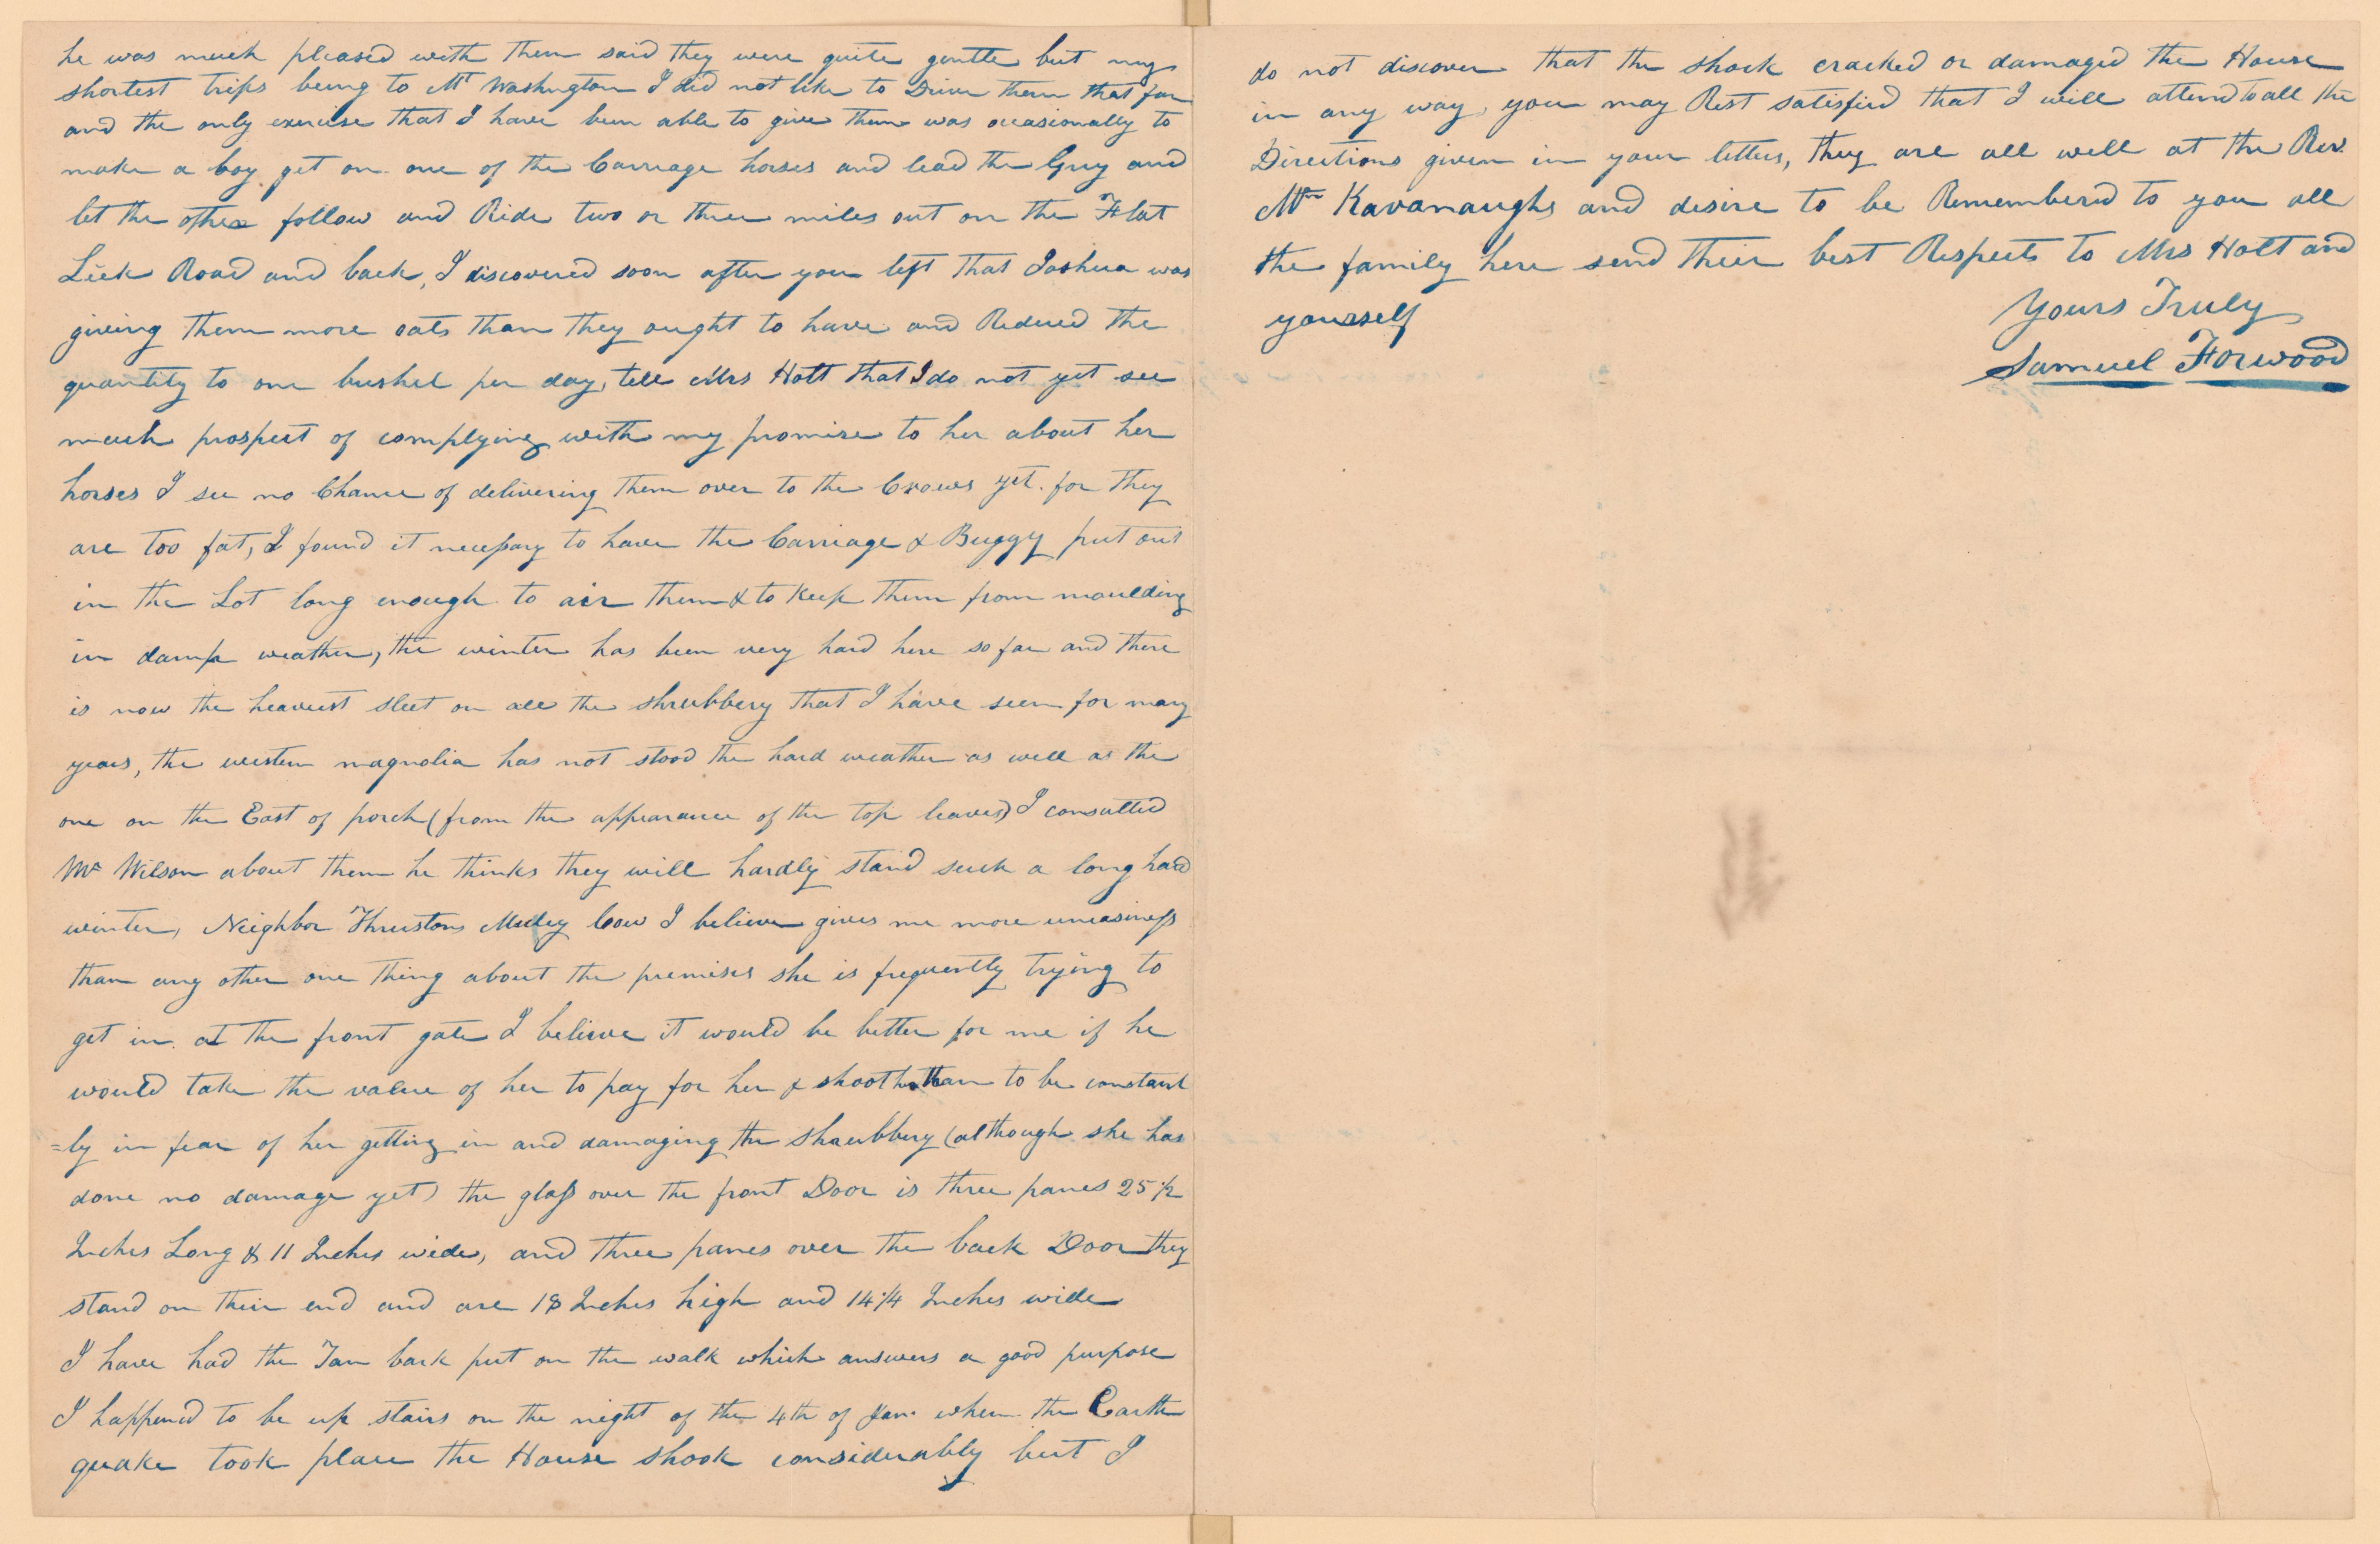 he was much pleased with them said they were quite gentle but my
shortest trips being to Mt Washington I did not like to Drive them that far
and the only exercise that I have been able to give them was occasionally to
make a boy get on one of the Carriage horses and lead the Grey and
let the other follow and Ride two or three miles out on the Flat
Lick Road and back, I discovered soon after you left that Joshua was
giving them more oats than they ought to have and Reduced the
quantity to one bushel per day, tell Mrs Holt that I do not yet see
much prospect of complying with my promise to her about her
horses I see no Chance of delivering them over to the Crows yet. for they
are too fat, I found it necessary to have the Carriage & Buggy put out
in the Lot long enough to air them & to Keep them from moulding
in damp weather, the winter has been very hard here so far and there
is now the heaviest sleet on all the shrubbery that I have seen for many
years, the western magnolia has not stood the hard weather as well as the
one on the East of porch (from the appearance of the top leaves) I consulted
Mr Wilson about them he thinks they will hardly stand such a long hard
winter, Neighbor Thrustons Muley Cow I believe gives me more uneasiness
than any other one thing about the premises she is frequently trying to
get in at the front gate I believe it would be better for me if he
would take the value of her to pay for her & shoot her than to be constant
=ly in fear of her getting in and damaging the shrubbery (although she has
done no damage yet) the glass over the front Door is three panes 25 1/2
Inches Long & 11 Inches wide, and three panes over the back Door they
stand on their end and are 18 Inches high and 14 1/4 Inches wide
I have had the Tan bark put on the walk which answers a good purpose
I happened to be up stairs on the night of the 4th of Jan. when the Earth
quake took place the House shook considerably but I
do not discover that the shock cracked or damaged the House
in any way, you may Rest satisfied that I will attend to all the
Directions given in your letters, they are all well at the Rev.
Mr Kavanaughs and desire to be Rememberd to you all
the family here send their best Respects to Mrs Holt and
yourself
Yours Truly
Samuel Forwood